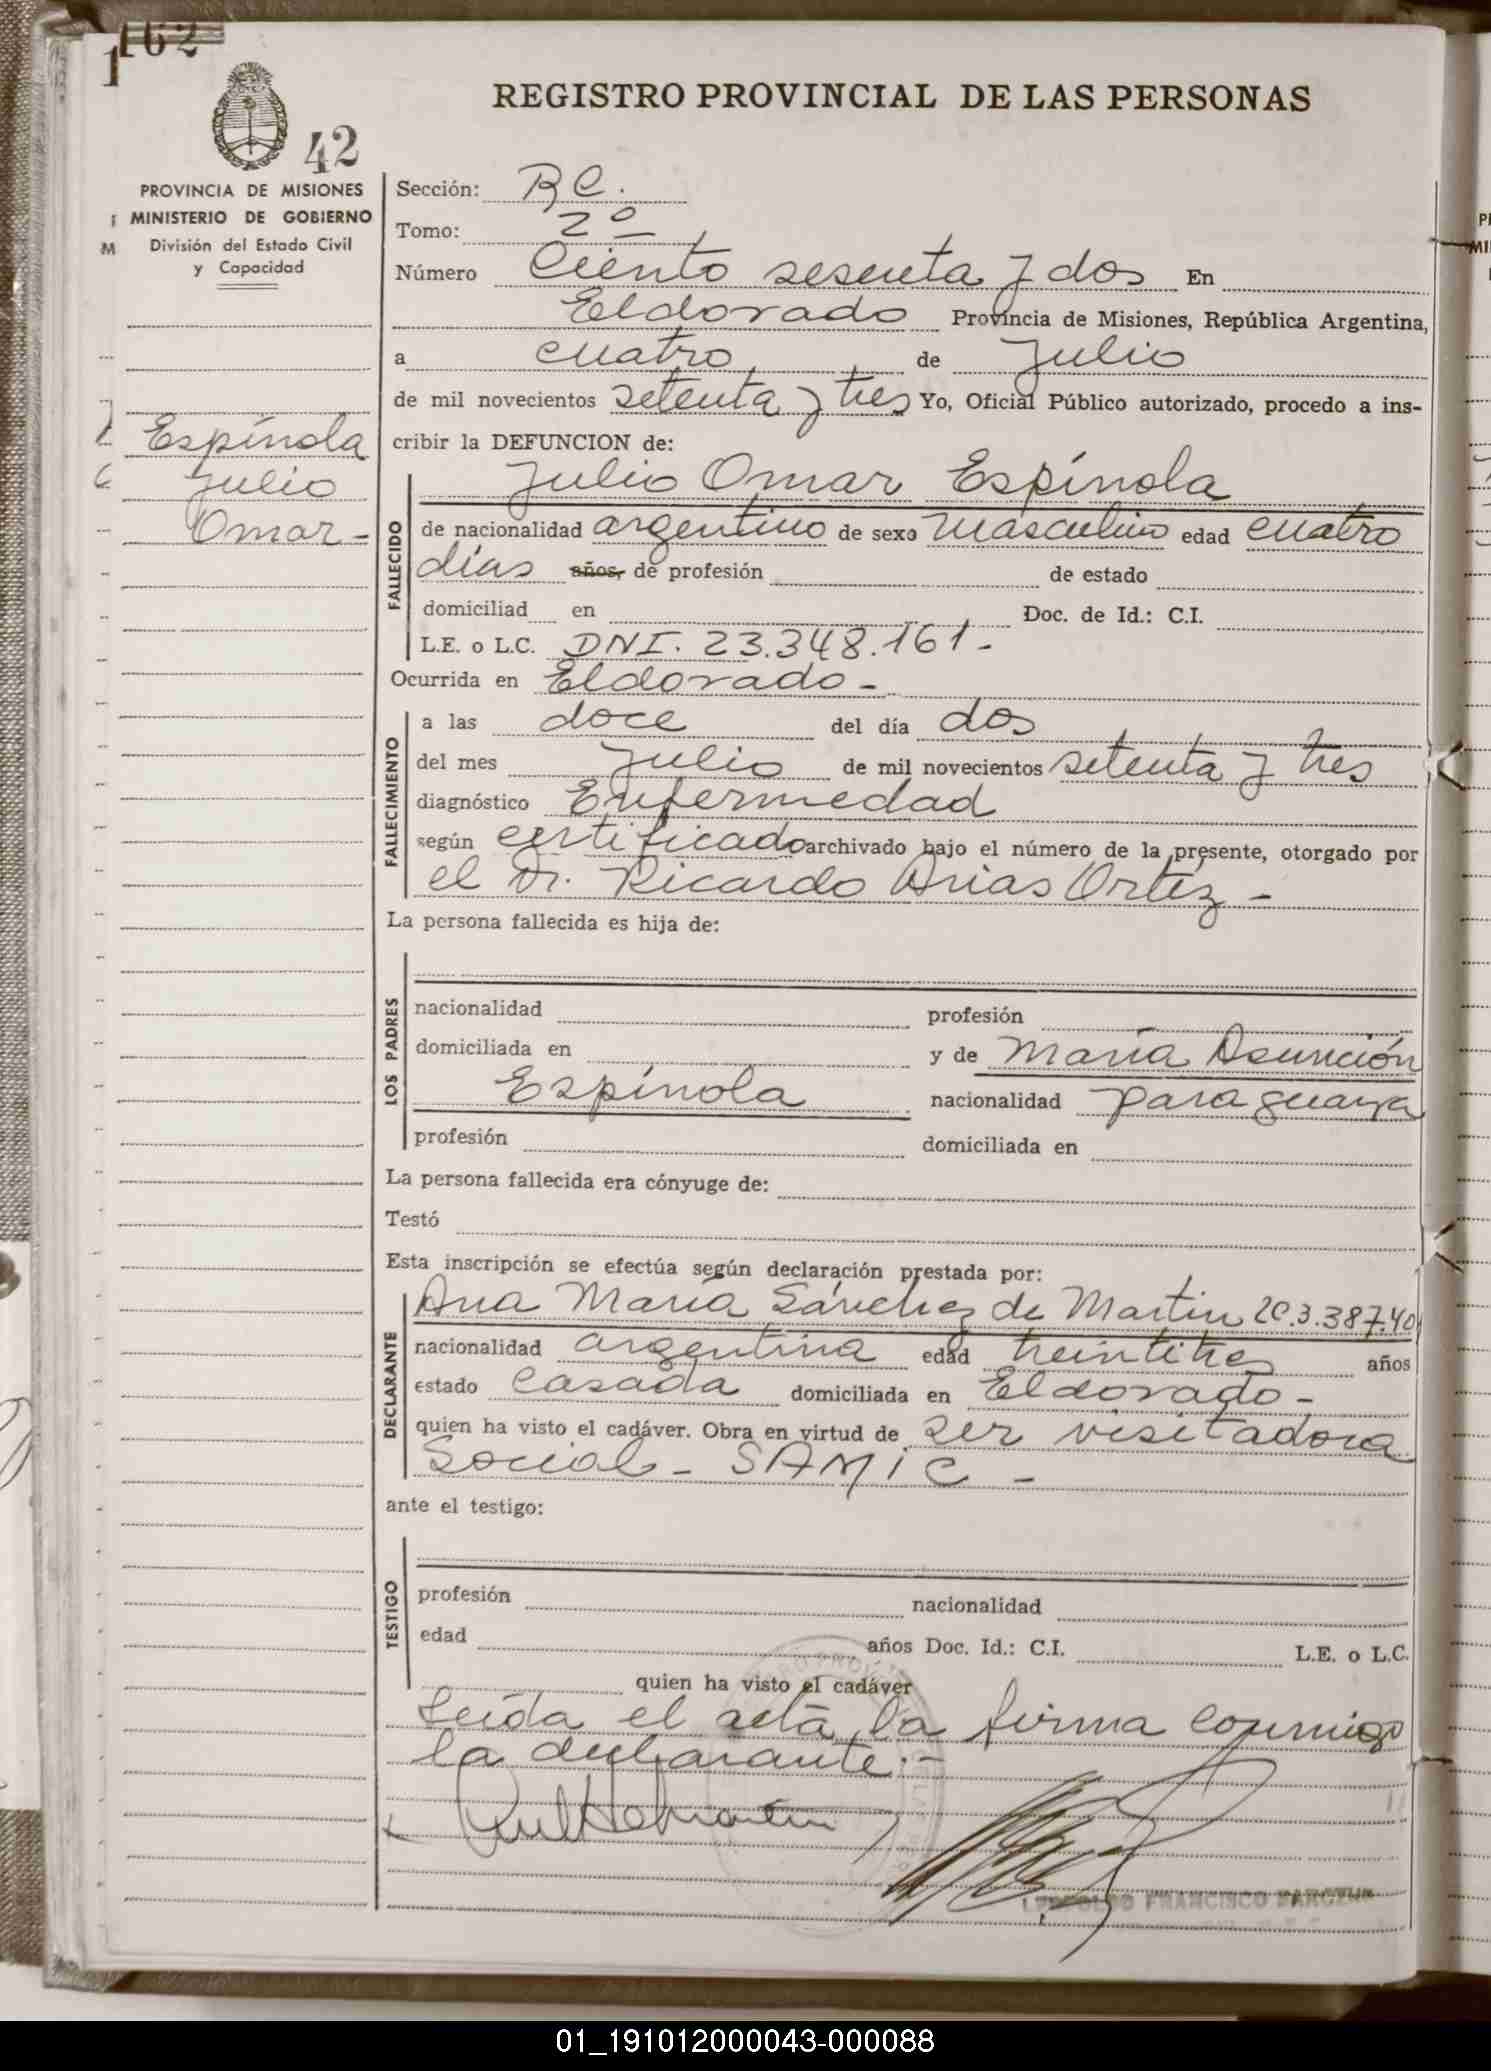 162
1
42
REGISTRO PROVINCIAL DE LAS PERSONAS
PROVINCIA DE MISIONES
MINISTERIO DE GOBIERNO
División del Estado Civil
y Capacidad
Espínola
Julio
Omar-
Sección: RC.
Tomo: 2º
Número Ciento sesenta y dos En
Eldorado Provincia de Misiones, República Argentina,
a cuatro de Julio
de mil novecientos setenta y tres Yo, Oficial Público autorizado, procedo a ins-
cribir la DEFUNCION de:
FALLECIDO
Julio Omar Espínola
de nacionalidad argentino de sexo masculino edad cuatro
días años, de profesión de estado
domiciliad en Doc. de Id.: C.I.
L.E. o L.C. DNI. 23.348.161.-
Ocurrida en Eldorado-
FALLECIMIENTO
a las doce del día dos
del mes Julio de mil novecientos setenta y tres
diagnóstico Enfermedad
según certificado archivado bajo el número de la presente, otorgado por
el Dr. Ricardo Arias Ortíz -
La persona fallecida es hija de:
LOS PADRES
nacionalidad profesión
domiciliada en y de María Asunción
Espínola nacionalidad paraguaya
profesión domiciliada en
La persona fallecida era cónyuge de:
Testó
Esta inscripción se efectúa según declaración prestada por:
DECLARANTE
Ana María Sánchez de Martin LC.3.387.40
nacionalidad argentina edad treintitres años
estado Casada domiciliada en Eldorado-
quien ha visto el cadáver. Obra en virtud de ser visitadora
Social- SAMIC -
ante el testigo:
TESTIGO
profesión nacionalidad
edad años Doc. Id.: C.I. L.E. o L.C.
quien ha visto el cadáver
Leída el acta, la firma conmigo
la declarante.-
FRANCISCO
01_191012000043-000088